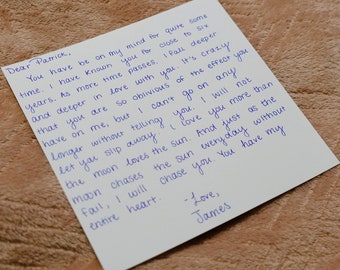 Dear Patrick,
You have be on my mind for quite some
time. I have known you for close to six
years. As more time passes, I fall deeper
and deeper in love with you. It's crazy
that you are so oblivious of the effect you
have on me, but I can't go on any
longer without telling you. I will not
let you slip away. I love you more than
the moon loves the sun. And just as the
moon chases the sun everyday without
fail, I will chase you. You have my
entire heart.
-Love,
James